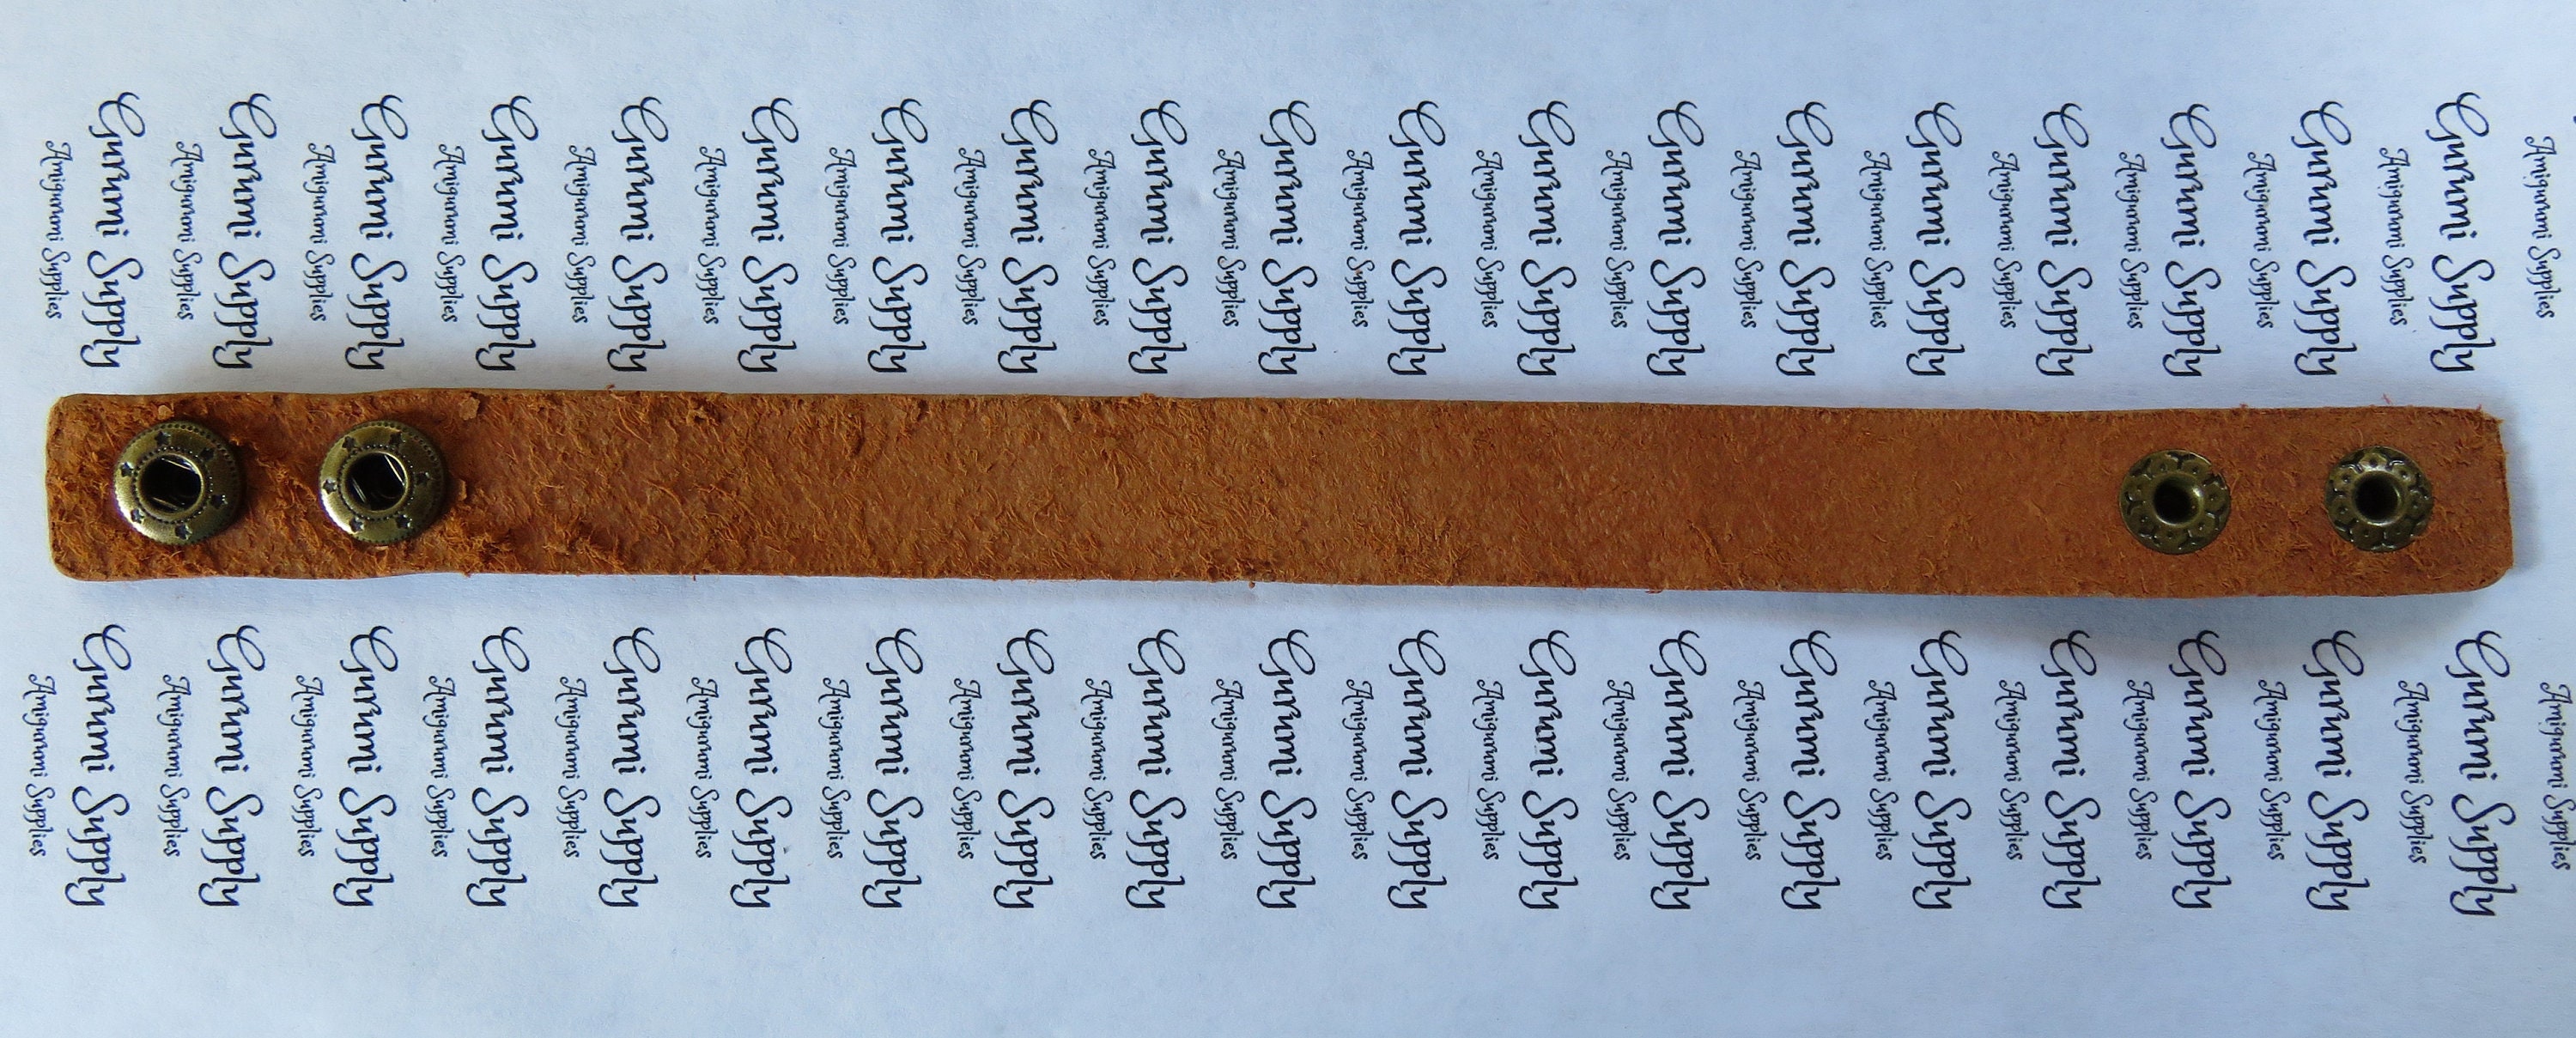 Amigurumi Supplies
Gurumi Supply
Amigurumi Supplies
Gurumi Supply
Amigurumi Supplies
Gurumi Supply
Amigurumi Supplies
Gurumi Supply
Amigurumi Supplies
Gurumi Supply
Amigurumi Supplies
Gurumi Supply
Amigurumi Supplies
Gurumi Supply
Amigurumi Supplies
Gurumi Supply
Amigurumi Supplies
Gurumi Supply
Amigurumi Supplies
Gurumi Supply
Amigurumi Supplies
Gurumi Supply
Amigurumi Supplies
Gurumi Supply
Amigurumi Supplies
Gurumi Supply
Amigurumi Supplies
Gurumi Supply
Amigurumi Supplies
Gurumi Supply
Amigurumi Supplies
Gurumi Supply
Amigurumi Supplies
Gurumi Supply
Amigurumi Supplies
Gurumi Supply
Amigurumi Supplies
Gurumi Supply
Amigurumi Supplies
Amigurumi Supplies
Gurumi Supply
Amigurumi Supplies
Gurumi Supply
Amigurumi Supplies
Gurumi Supply
Amigurumi Supplies
Gurumi Supply
Amigurumi Supplies
Gurumi Supply
Amigurumi Supplies
Gurumi Supply
Amigurumi Supplies
Gurumi Supply
Amigurumi Supplies
Gurumi Supply
Amigurumi Supplies
Gurumi Supply
Amigurumi Supplies
Gurumi Supply
Amigurumi Supplies
Gurumi Supply
Amigurumi Supplies
Gurumi Supply
Amigurumi Supplies
Gurumi Supply
Amigurumi Supplies
Gurumi Supply
Amigurumi Supplies
Gurumi Supply
Amigurumi Supplies
Gurumi Supply
Amigurumi Supplies
Gurumi Supply
Amigurumi Supplies
Gurumi Supply
Amigurumi Supplies
Gurumi Supply
Amigurumi Supplies